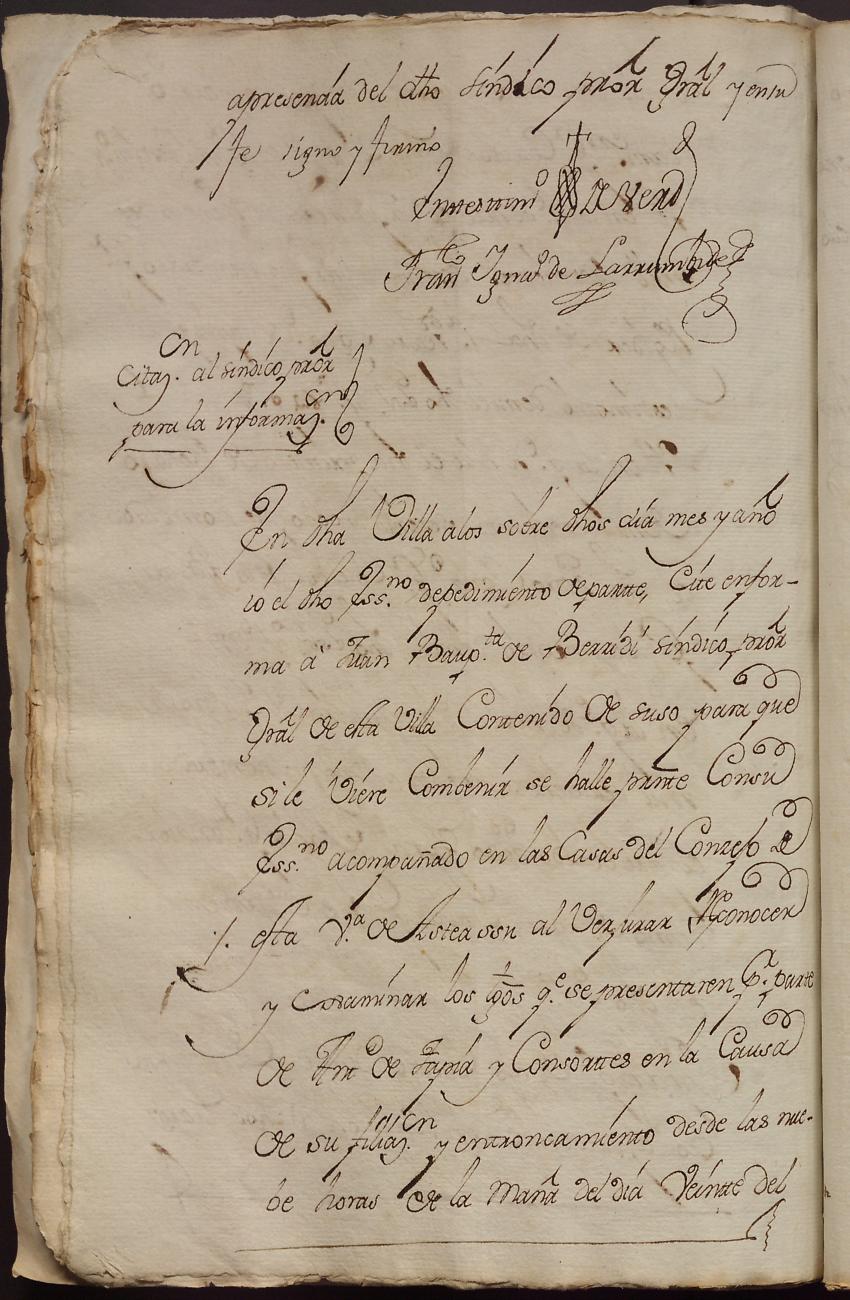 apresencia del dho síndico prõr Grãl y en su
fe signo y firmo
En testimº de Verd
Franco Ignaº de Larrumbide
Citazon. al síndico prõr
para la informazon.
En dha Villa alos sobre dhos dia mes y año
io el dho Essno. depedimiento de partte, Cite enfor-
ma à Juan Baupta. de Berridi síndico prõr
Grãl de esta Villa Contenido de suso para que
si le viere Combenir se halle, pnte Consu
Essno. acompañado en las Casas del Conzejo de
/. esta Va. de Asteassu al Ver jurar Rconocer
y examinar los tgõs qe. se presentaren Pr. parte
de Antº de Tapia y Consorttes en la Causa
de su filiazon. y entroncamiento desde las nue-
be horas de la Mañã del dia Veintte del